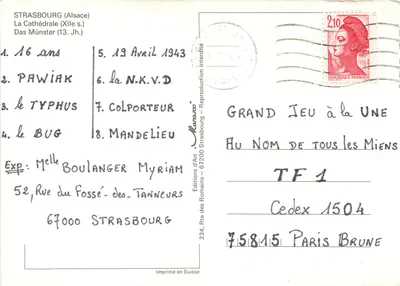 STRASBOURG (Alsace)
La Cathédrale (XIIe s.)
Das Münster (13. Jh.)
1. 16 ans
2. PAWIAK
3. le TYPHUS
4. le BUG
5. 19 Avril 1943
6. la N.K.V.D
7. COLPORTEUR
8. MANDELIEU
Exp: Melle BOULANGER MYRIAM
52, Rue du Fossé-des-TANNEURS
67000 STRASBOURG
Editions d'Art Marasco - Reproduction interdite
234, Rte des Romains - 67200 Strasbourg
Imprimé en Suisse
2,10
GRAND JEU à la UNE
AU NOM DE TOUS LES MIENS
TF1
Cedex 1504
75815 PARIS BRUNE